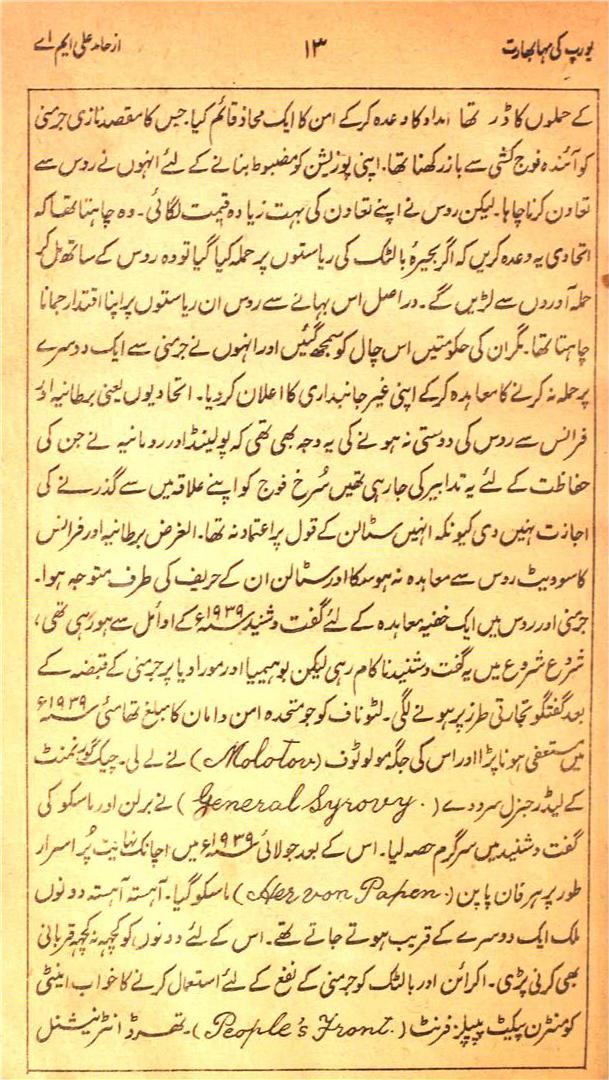 یورپ کی مہابھارت
۱۳
از حامد علی ایم اے
کے حملوں کا ڈر تھا امداد کا وعدہ کرکے امن کا ایک محاذ قائم کیا۔ جس کا مقصد نازی جرمنی
کو آئندہ فوج کشی سے باز رکھنا تھا۔ اپنی پوزیشن کو مضبوط بنانے کے لئے انہوں نے روس سے
تعاون کرنا چاہا۔ لیکن روس نے اپنے تعاون کی بہت زیادہ قیمت لگائی۔ وہ چاہتا تھا کہ
اتحادی یہ وعدہ کریں کہ اگر بحیرۂ بالٹک کی ریاستوں پر حملہ کیا گیا تو وہ روس کے ساتھ مل کر
حملہ آوروں سے لڑیں گے۔ دراصل اس بہانے سے روس ان ریاستوں پر اپنا اقتدار جمانا
چاہتا تھا۔ مگر ان کی حکومتیں اس چال کو سمجھ گئیں اور انہوں نے جرمنی سے ایک دوسرے
پر حملہ نہ کرنے کا معاہدہ کرکے اپنی غیر جانبداری کا اعلان کر دیا۔ اتحادیوں یعنی برطانیہ اور
فرانس سے روس کی دوستی نہ ہونے کی یہ وجہ بھی تھی کہ پولینڈ اور رومانیہ نے جن کی
حفاظت کے لئے یہ تدابیر کی جا رہی تھیں سُرخ فوج کو اپنے علاقہ میں سے گذرنے کی
اجازت نہیں دی کیونکہ انہیں سٹالن کے قول پر اعتماد نہ تھا۔ الغرض برطانیہ اور فرانس
کا سوویٹ روس سے معاہدہ نہ ہو سکا اور سٹالن ان کے حریف کی طرف متوجہ ہوا۔
جرمنی اور روس میں ایک خفیہ معاہدہ کے لئے گفت و شنید ۱۹۳۹ء کے اوائل سے ہو رہی تھی،
شروع شروع میں یہ گفت و شنید ناکام رہی لیکن بوہیمیا اور موراویا پر جرمنی کے قبضہ کے
بعد گفتگو تجارتی طرز پر ہونے لگی۔ لٹوناف کو جو متحدہ امن و امان کا مبلغ تھا مئی ۱۹۳۹ء
میں مستعفی ہونا پڑا اور اس کی جگہ مولوٹوف (Molotov) نے لے لی۔ چیک گورنمنٹ
کے لیڈر جنرل سرووے (General Syrovy.) نے برلن اور ماسکو کی
گفت و شنید میں سرگرم حصہ لیا۔ اس کے بعد جولائی ۱۹۳۹ء میں اچانک نہایت پُر اسرار
طور پر ہر فان پاپن (Her von Papen.) ماسکو گیا۔ آہستہ آہستہ دونوں
ملک ایک دوسرے کے قریب ہوتے جاتے تھے۔ اس کے لئے دونوں کو کچھ نہ کچھ قربانی
بھی کرنی پڑی۔ اکرائن اور بالٹک کو جرمنی کے نفع کے لئے استعمال کرنے کا خواب اینٹی
کومنٹرن پیکٹ پیپلز فرنٹ (People's Front.)۔ تھرڈ انٹرنیشنل